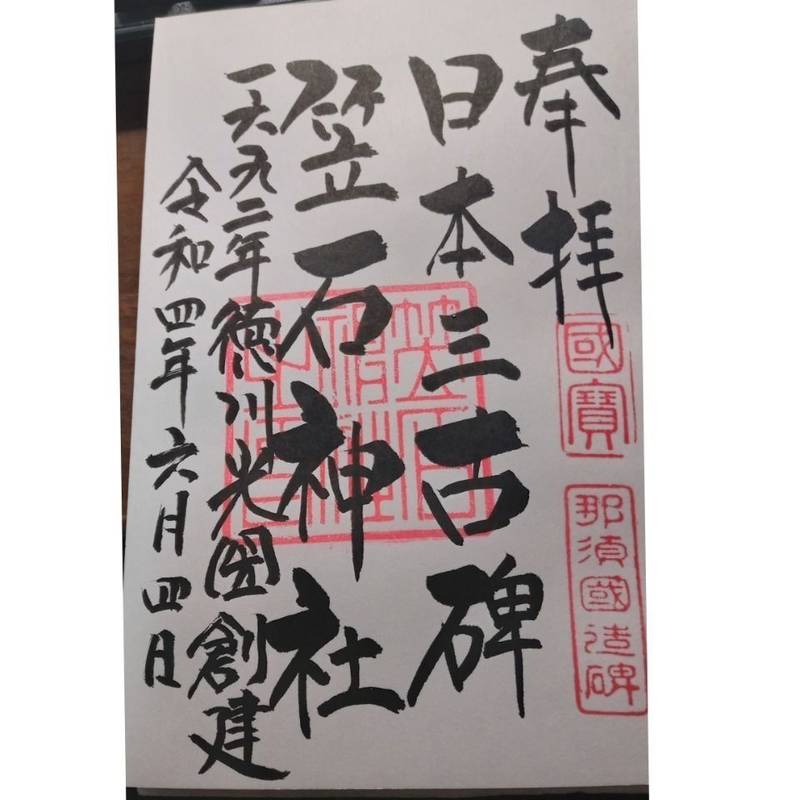 奉拝
國寶
那須國造碑
日本三古碑
笠石神社
一六九二年徳川光圀創建
令和四年六月四日